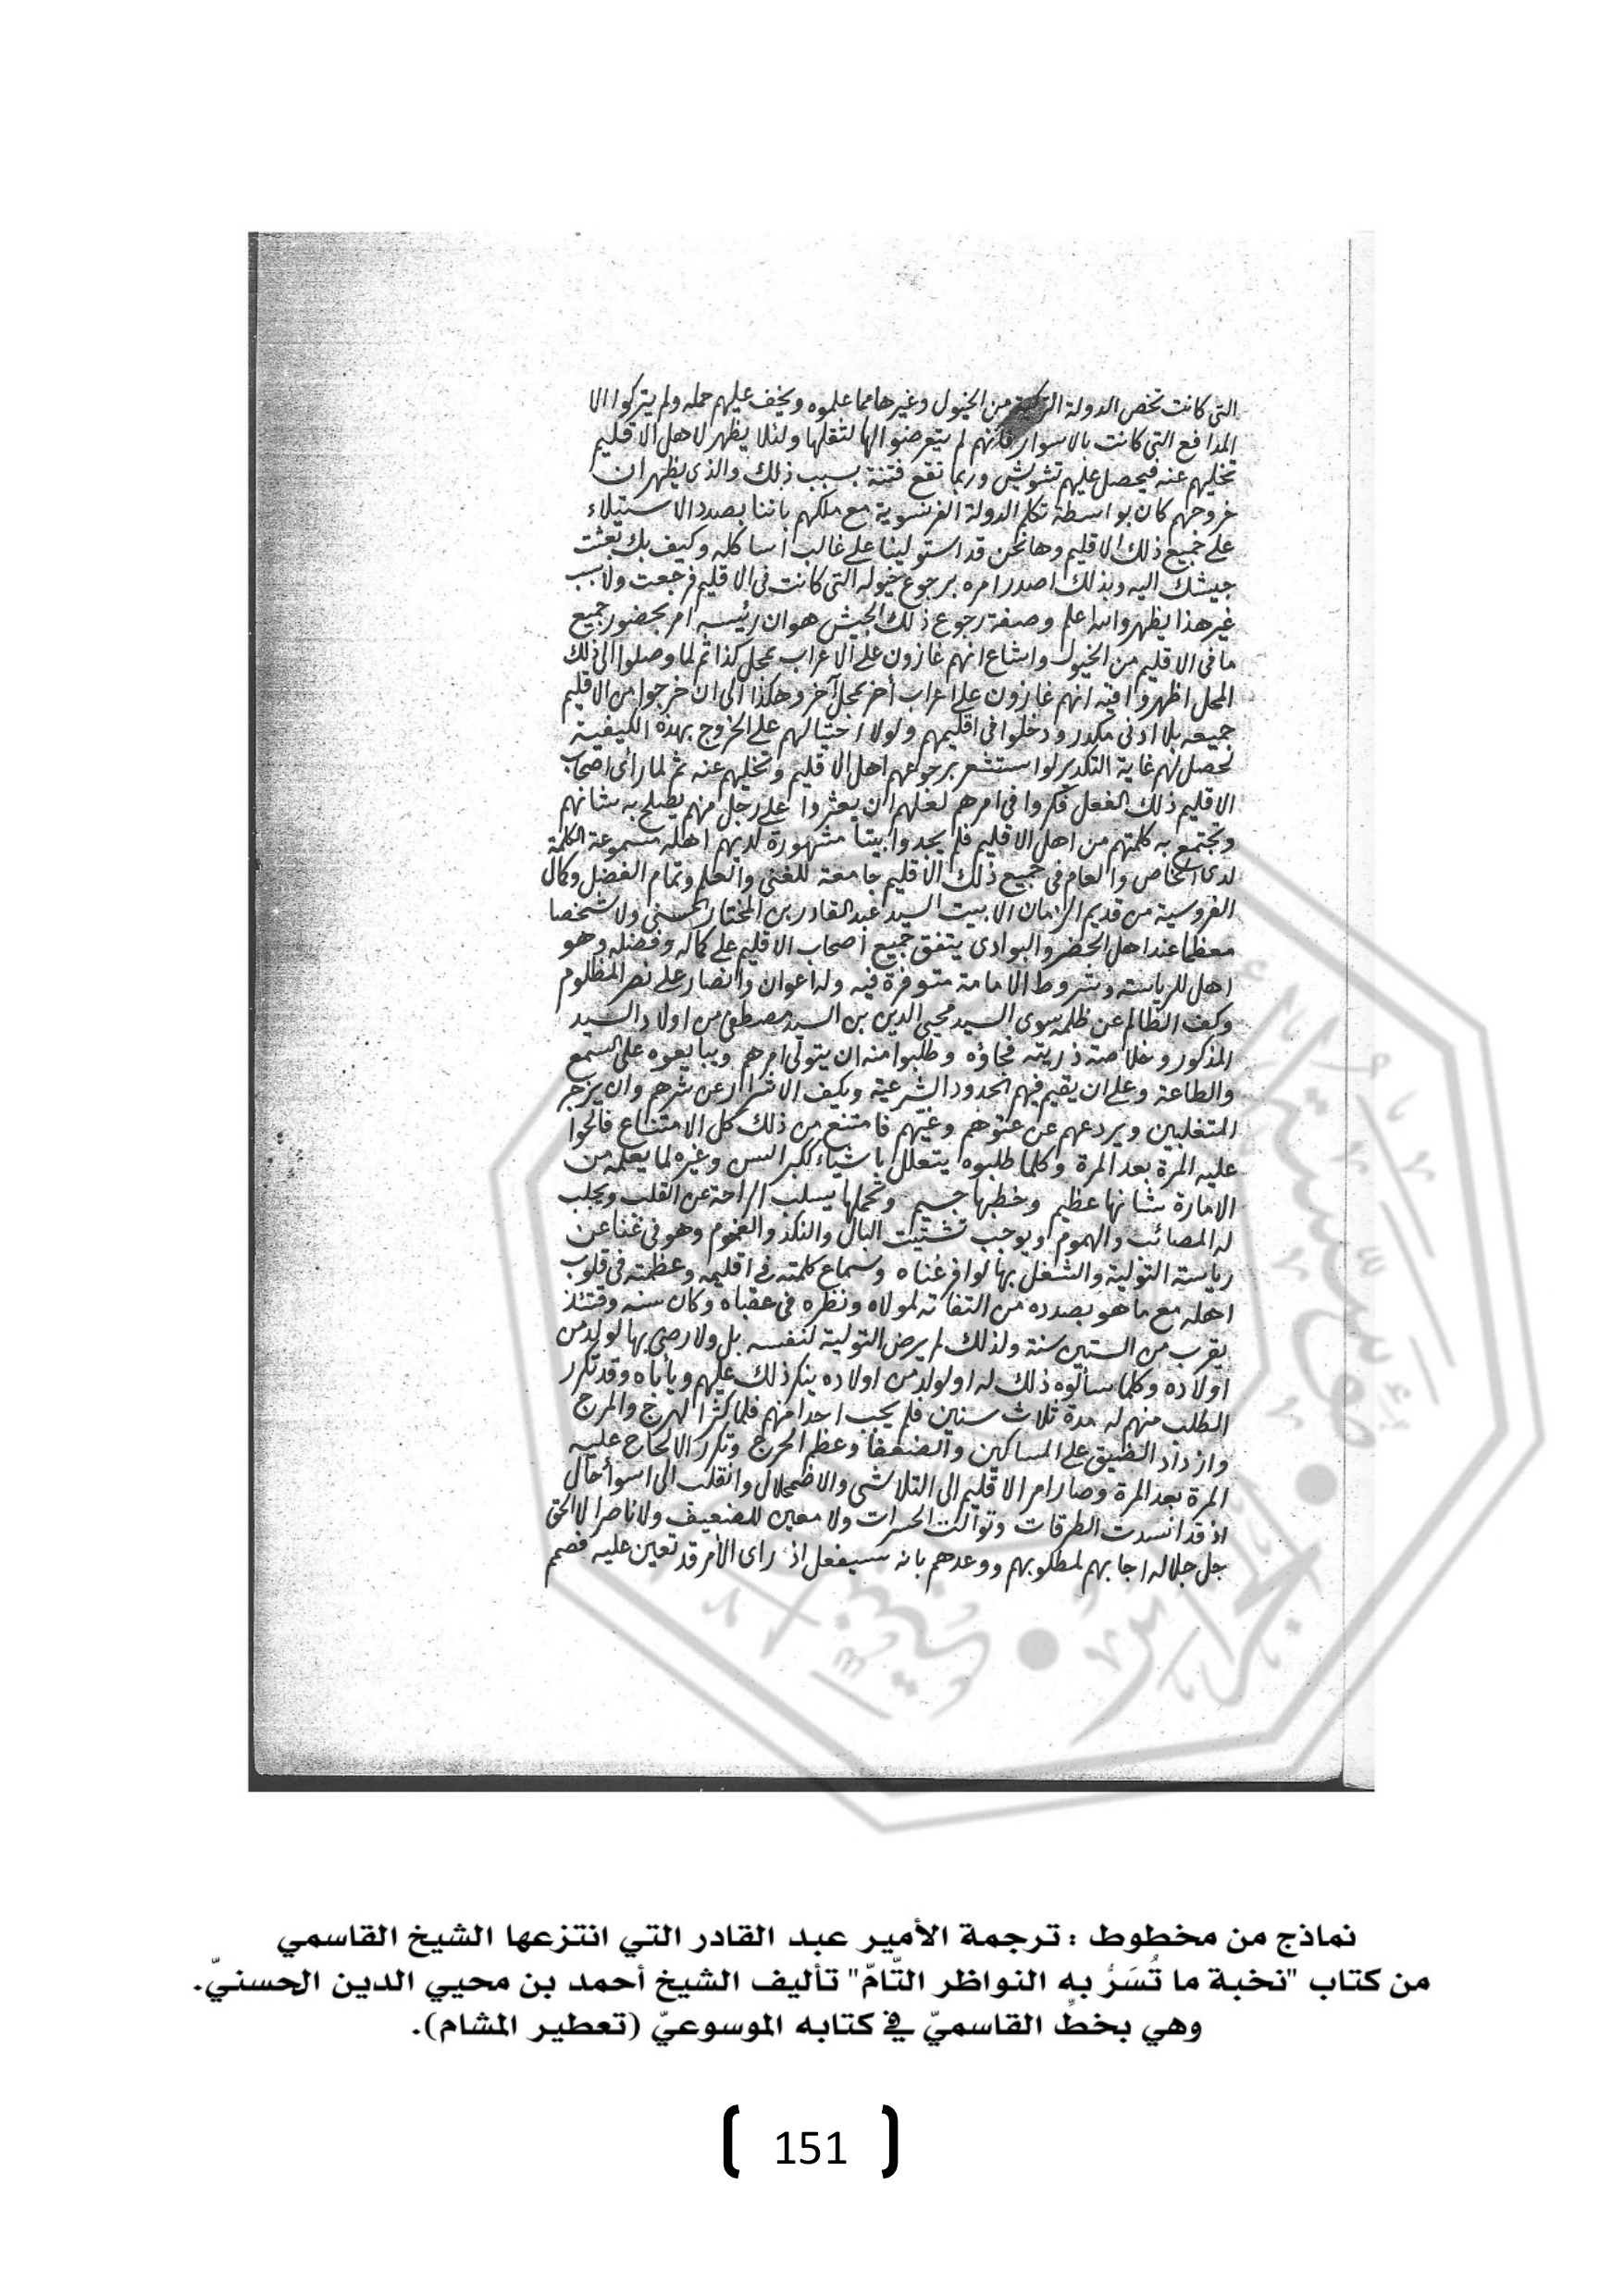 التى كانت تخص الدولة التركية من الخيول وغيرها مما علموه ويخف عليهم حمله ولم يتركوا الا
المدافع التى كانت بالاسوار فانهم لم يتعرضوا لها لثقلها ولئلا يظهر لاهل الاقليم
تخليهم عنه فيحصل عليهم تشويش وربما تقع فتنة بسبب ذلك والذى يظهر ان
خروجهم كان بواسطة تكلم الدولة الفرنسوية مع ملكهم باننا بصدد الاستيلاء
على جميع ذلك الاقليم وها نحن قد استولينا على غالب اساكله وكيف بك بعثت
جيشك اليه وبذلك اصدر امره برجوع خيوله التى كانت فى الاقليم فرجعت ولا سبب
غير هذا يظهر والله اعلم وصفة رجوع ذلك الجيش هو ان رئيسه امر بحضور جميع
ما فى الاقليم من الخيول واشاع انهم غازون على الاعراب بمحل كذا ثم لما وصلوا الى ذلك
المحل اظهروا فيه انهم غازون على اعراب أخر بمحل آخر وهكذا الى ان خرجوا من الاقليم
جميعه بلا ادنى مكدر ودخلوا فى اقليمهم ولولا احتيالهم على الخروج بهذه الكيفية
لحصل لهم غاية التكدير لو استشعر برجوعهم اهل الاقليم وتخليهم عنه ثم لما رأى اصحاب
الاقليم ذلك الفعل فكروا فى امرهم لعلهم ان يعثروا على رجل منهم يصلح به شانهم
وتجتمع به كلمتهم من اهل الاقليم فلم يجدوا بيتا مشهورة لديهم اهله مسموعة الكلمة
لدى الخاص والعام فى جميع ذلك الاقليم جامعة للغنى والعلم وتمام الفضل وكمال
الفروسية من قديم الزمان الا بيت السيد عبد القادر بن المختار الحسنى ولا شخصا
معظما عند اهل الحضر والبوادى يتفق جميع اصحاب الاقليم على كماله وفضله وهو
اهل للرياسة وشروط الامامة متوفرة فيه وله اعوان وانصار على نصر المظلوم
وكف الظالم عن ظلمه سوى السيد محيى الدين بن السيد مصطفى من اولاد السيد
المذكور وخلاصة ذريته فجاؤه وطلبوا منه ان يتولى امرهم ويبايعوه على السمع
والطاعة وعلى ان يقيم فيهم الحدود الشرعية ويكف الاشرار عن شرهم وان يزجر
المتغلبين ويردعهم عن عتوهم وغيّهم فامتنع من ذلك كل الامتناع فالحوا
عليه المرة بعد المرة وكلما طلبوه يتعلل باشياء ككبر السن وغيره لما يعلمه من
الامارة شانها عظيم وخطبها جسيم وتحملها يسلب الراحة عن القلب ويجلب
له المصائب والهموم ويوجب تشتيت البال والنكد والغموم وهو فى غنا عن
رياسة التولية والشغل بها لوافر غناه وسماع كلمته فى اقليمه وعظمته فى قلوب
اهله مع ما هو بصدده من التفاته لمولاه ونظره فى عقباه وكان سنه وقتئذ
يقرب من الستين سنة ولذلك لم يرض التولية لنفسه بل ولا رضى بها لولد من
اولاده وكلما سألوه ذلك له او لولد من اولاده ينكر ذلك عليهم ويأباه وقد تكرر
الطلب منهم له مدة ثلاث سنين فلم يجب احدا منهم فلما كثر الهرج والمرج
وازداد التضيق على المساكين والضعفا وعظم الحرج وتكرر الالحاح عليه
المرة بعد المرة وصار امر الاقليم الى التلاشى والاضمحلال وانقلب الى اسوأ حال
اذ قد انسدت الطرقات وتوالت الحسرات ولا معين للضعيف ولا ناصر الا الحق
جل جلاله اجابهم لمطلوبهم ووعدهم بانه سيفعل اذ راى الأمر قد تعين عليه فصمم
نماذج من مخطوط : ترجمة الأمير عبد القادر التي انتزعها الشيخ القاسمي
من كتاب "نخبة ما تُسَرُّ به النواظر التّامّ" تأليف الشيخ أحمد بن محيي الدين الحسنيّ.
وهي بخطِّ القاسميّ في كتابه الموسوعيّ (تعطير المشام).
151